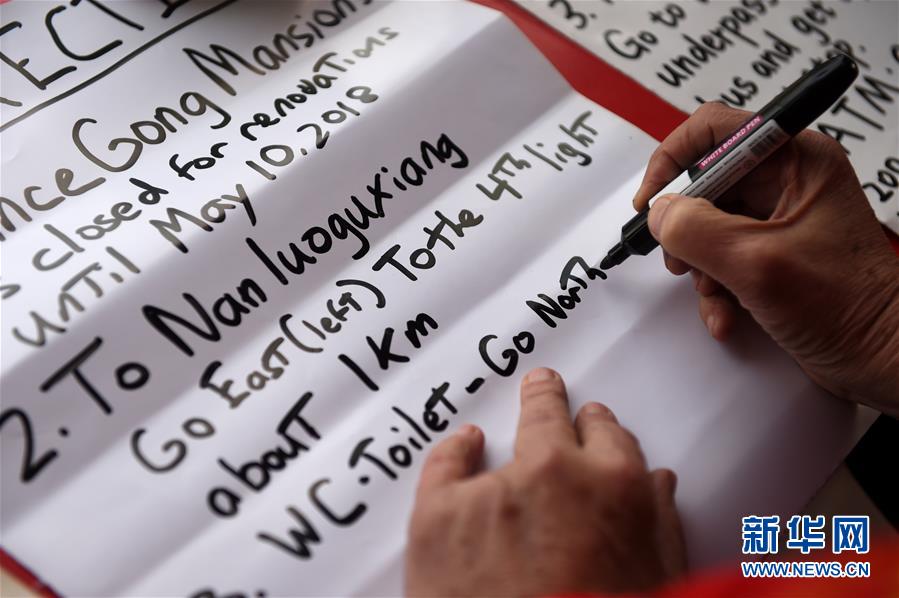 RECTI
nce Gong Mansion
closed for renovations
until May 10. 2018
2. To Nanluoguxiang
Go East (left) To the 4Th light
about 1Km
WC. Toilet - Go North
3.
Go to
underpass
bus and get
ATM.
200
WHITE BOARD PEN
新华网
WWW.NEWS.CN